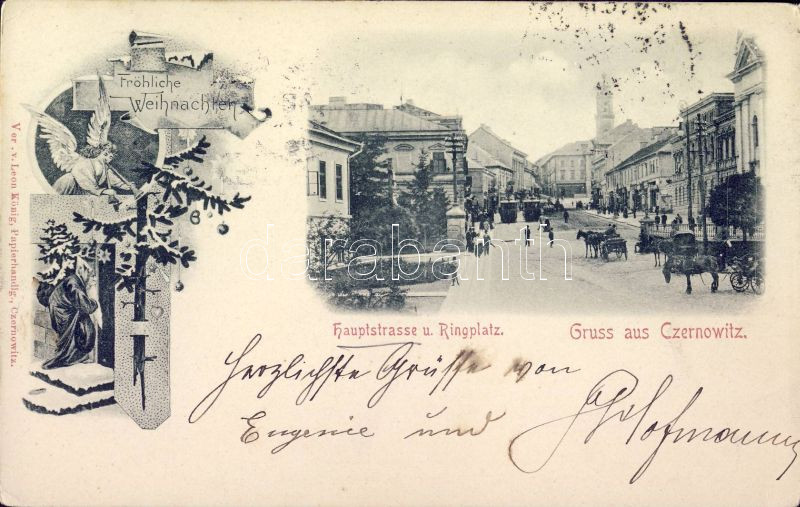 Fröhliche
Weihnachten
Ver. v. Leon König, Papierhandlg., Czernowitz.
darabanth
Hauptstrasse u. Ringplatz.
Gruss aus Czernowitz.
Herzlichste Grüsse von
Eugenie und Hofmann